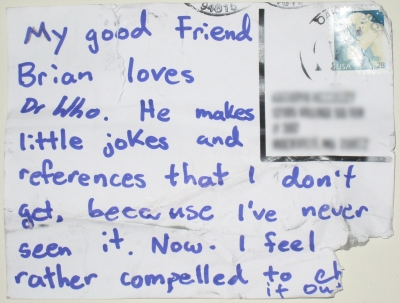 My good Friend
Brian loves
Dr Who. He makes
little jokes and
references that I don't
get, because I've never
seen it. Now. I feel
rather compelled to
it out
USA
28